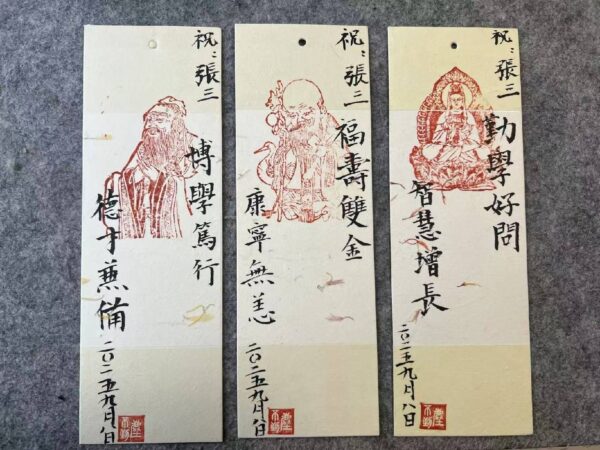 祝:張三
博學篤行
德才兼備
二〇二五九月八日
祝:張三
福壽雙金
康寧無恙
二〇二五九月八日
祝:張三
勤學好問
智慧增長
二〇二五九月八日